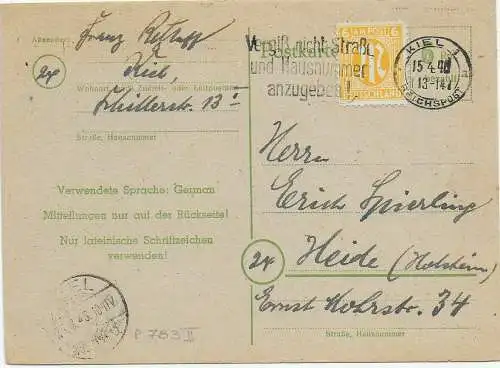 Absender:
Franz
24 Kiel,
Wohnort, auch Zustell- oder Leitpostamt
Schillerstr. 13 I
Straße, Hausnummer
Verwendete Sprache: German
Mitteilungen nur auf der Rückseite!
Nur lateinische Schriftzeichen
verwenden!
P 783 II
Postkarte
Vergiß nicht Straße
und Hausnummer
anzugeben!
6 AM POST 6
DEUTSCHLAND
KIEL 1
15.4.46
13-14
REICHSPOST
Herrn
Erich Spierling
24 Heide (Holstein)
Ernst Mohrstr. 34
Straße, Hausnummer